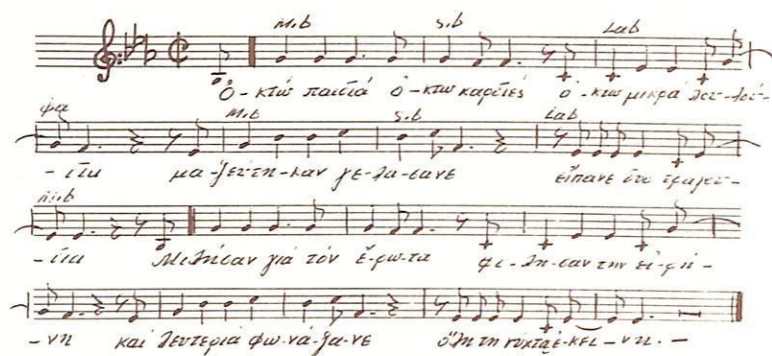 Μι b Σι b Λα b
ὀ-κτώ παιδιά ὀ-κτώ καρδιές ὀ-κτώ μικρά λου-λού-
φα Μι b Σι b Λα b
-δια μα-ζευτή-καν γε-λά-σανε εἴπανε ἕνα τραγού-
Μι b
-δια Μιλήσαν γιά τόν ἔ-ρω-τα φι-λή-σαν την εἰ-ρή-
-νη καί λευτεριά φω-νά-ξανε ὅλη τη νύχτα ἐ-κεί-νη. -